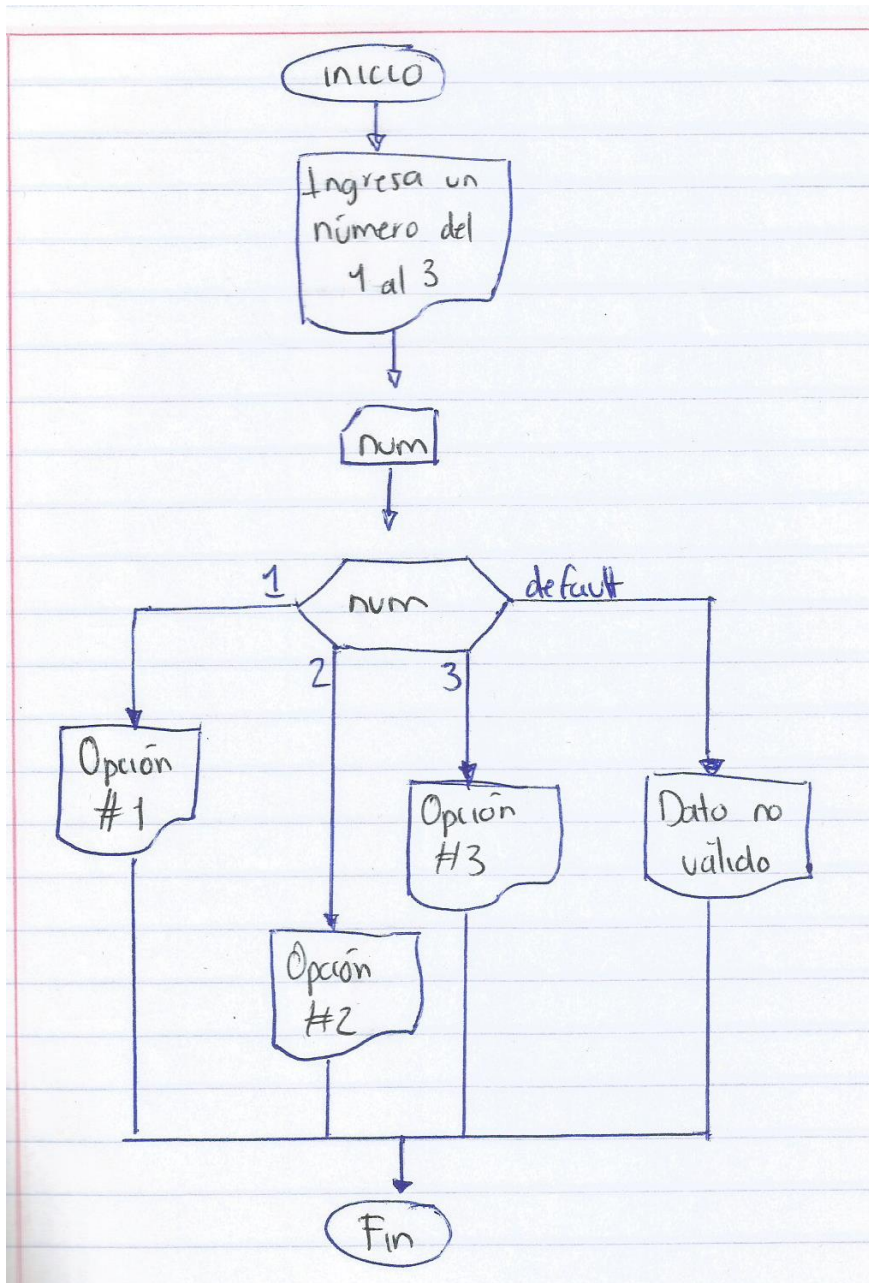 inicio
Ingresa un
número del
1 al 3
num
1
num
default
2
3
Opción
#1
Opción
#3
Dato no
válido
Opción
#2
Fin